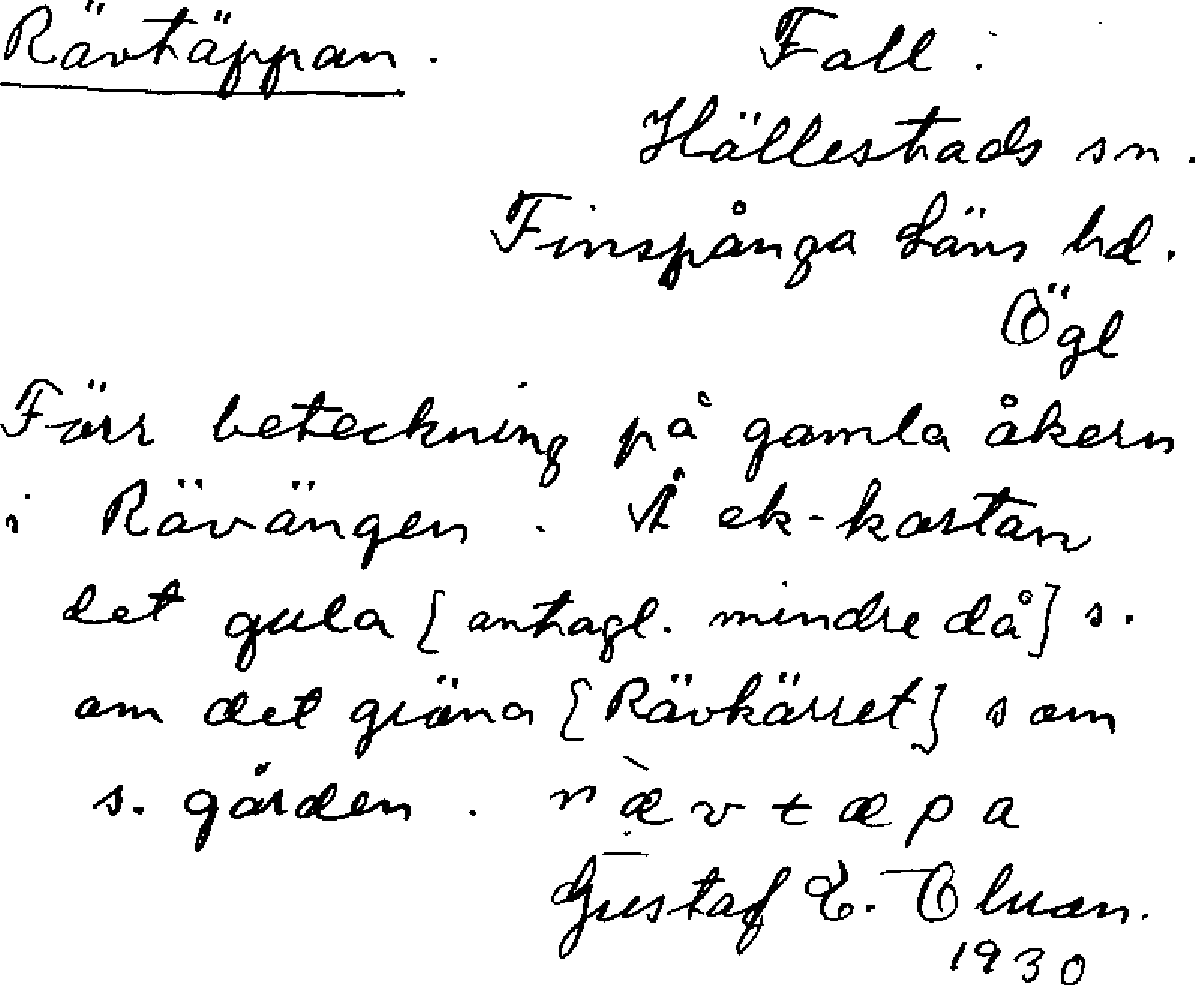 Rävtäppan. Fall.
Hällestads sn.
Finspånga Läns hd.
Ögl
Förr beteckning på gamla åkern
i Rävängen. Å ek-kartan
det gula [antagl. mindre då] s.
om det gröna [Rävkärret] s om
s. gården. rævtæpa
Gustaf E.
1930